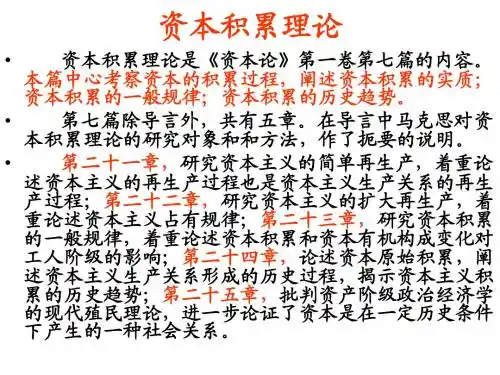 资本积累理论
• 资本积累理论是《资本论》第一卷第七篇的内容。
本篇中心考察资本的积累过程，阐述资本积累的实质；
资本积累的一般规律；资本积累的历史趋势。
• 第七篇除导言外，共有五章。在导言中马克思对资
本积累理论的研究对象和和方法，作了扼要的说明。
• 第二十一章，研究资本主义的简单再生产，着重论
述资本主义的再生产过程也是资本主义生产关系的再生
产过程；第二十二章，研究资本主义的扩大再生产，着
重论述资本主义占有规律；第二十三章，研究资本积累
的一般规律，着重论述资本积累和资本有机构成变化对
工人阶级的影响；第二十四章，论述资本原始积累，阐
述资本主义生产关系形成的历史过程，揭示资本主义积
累的历史趋势；第二十五章，批判资产阶级政治经济学
的现代殖民理论，进一步论证了资本是在一定历史条件
下产生的一种社会关系。